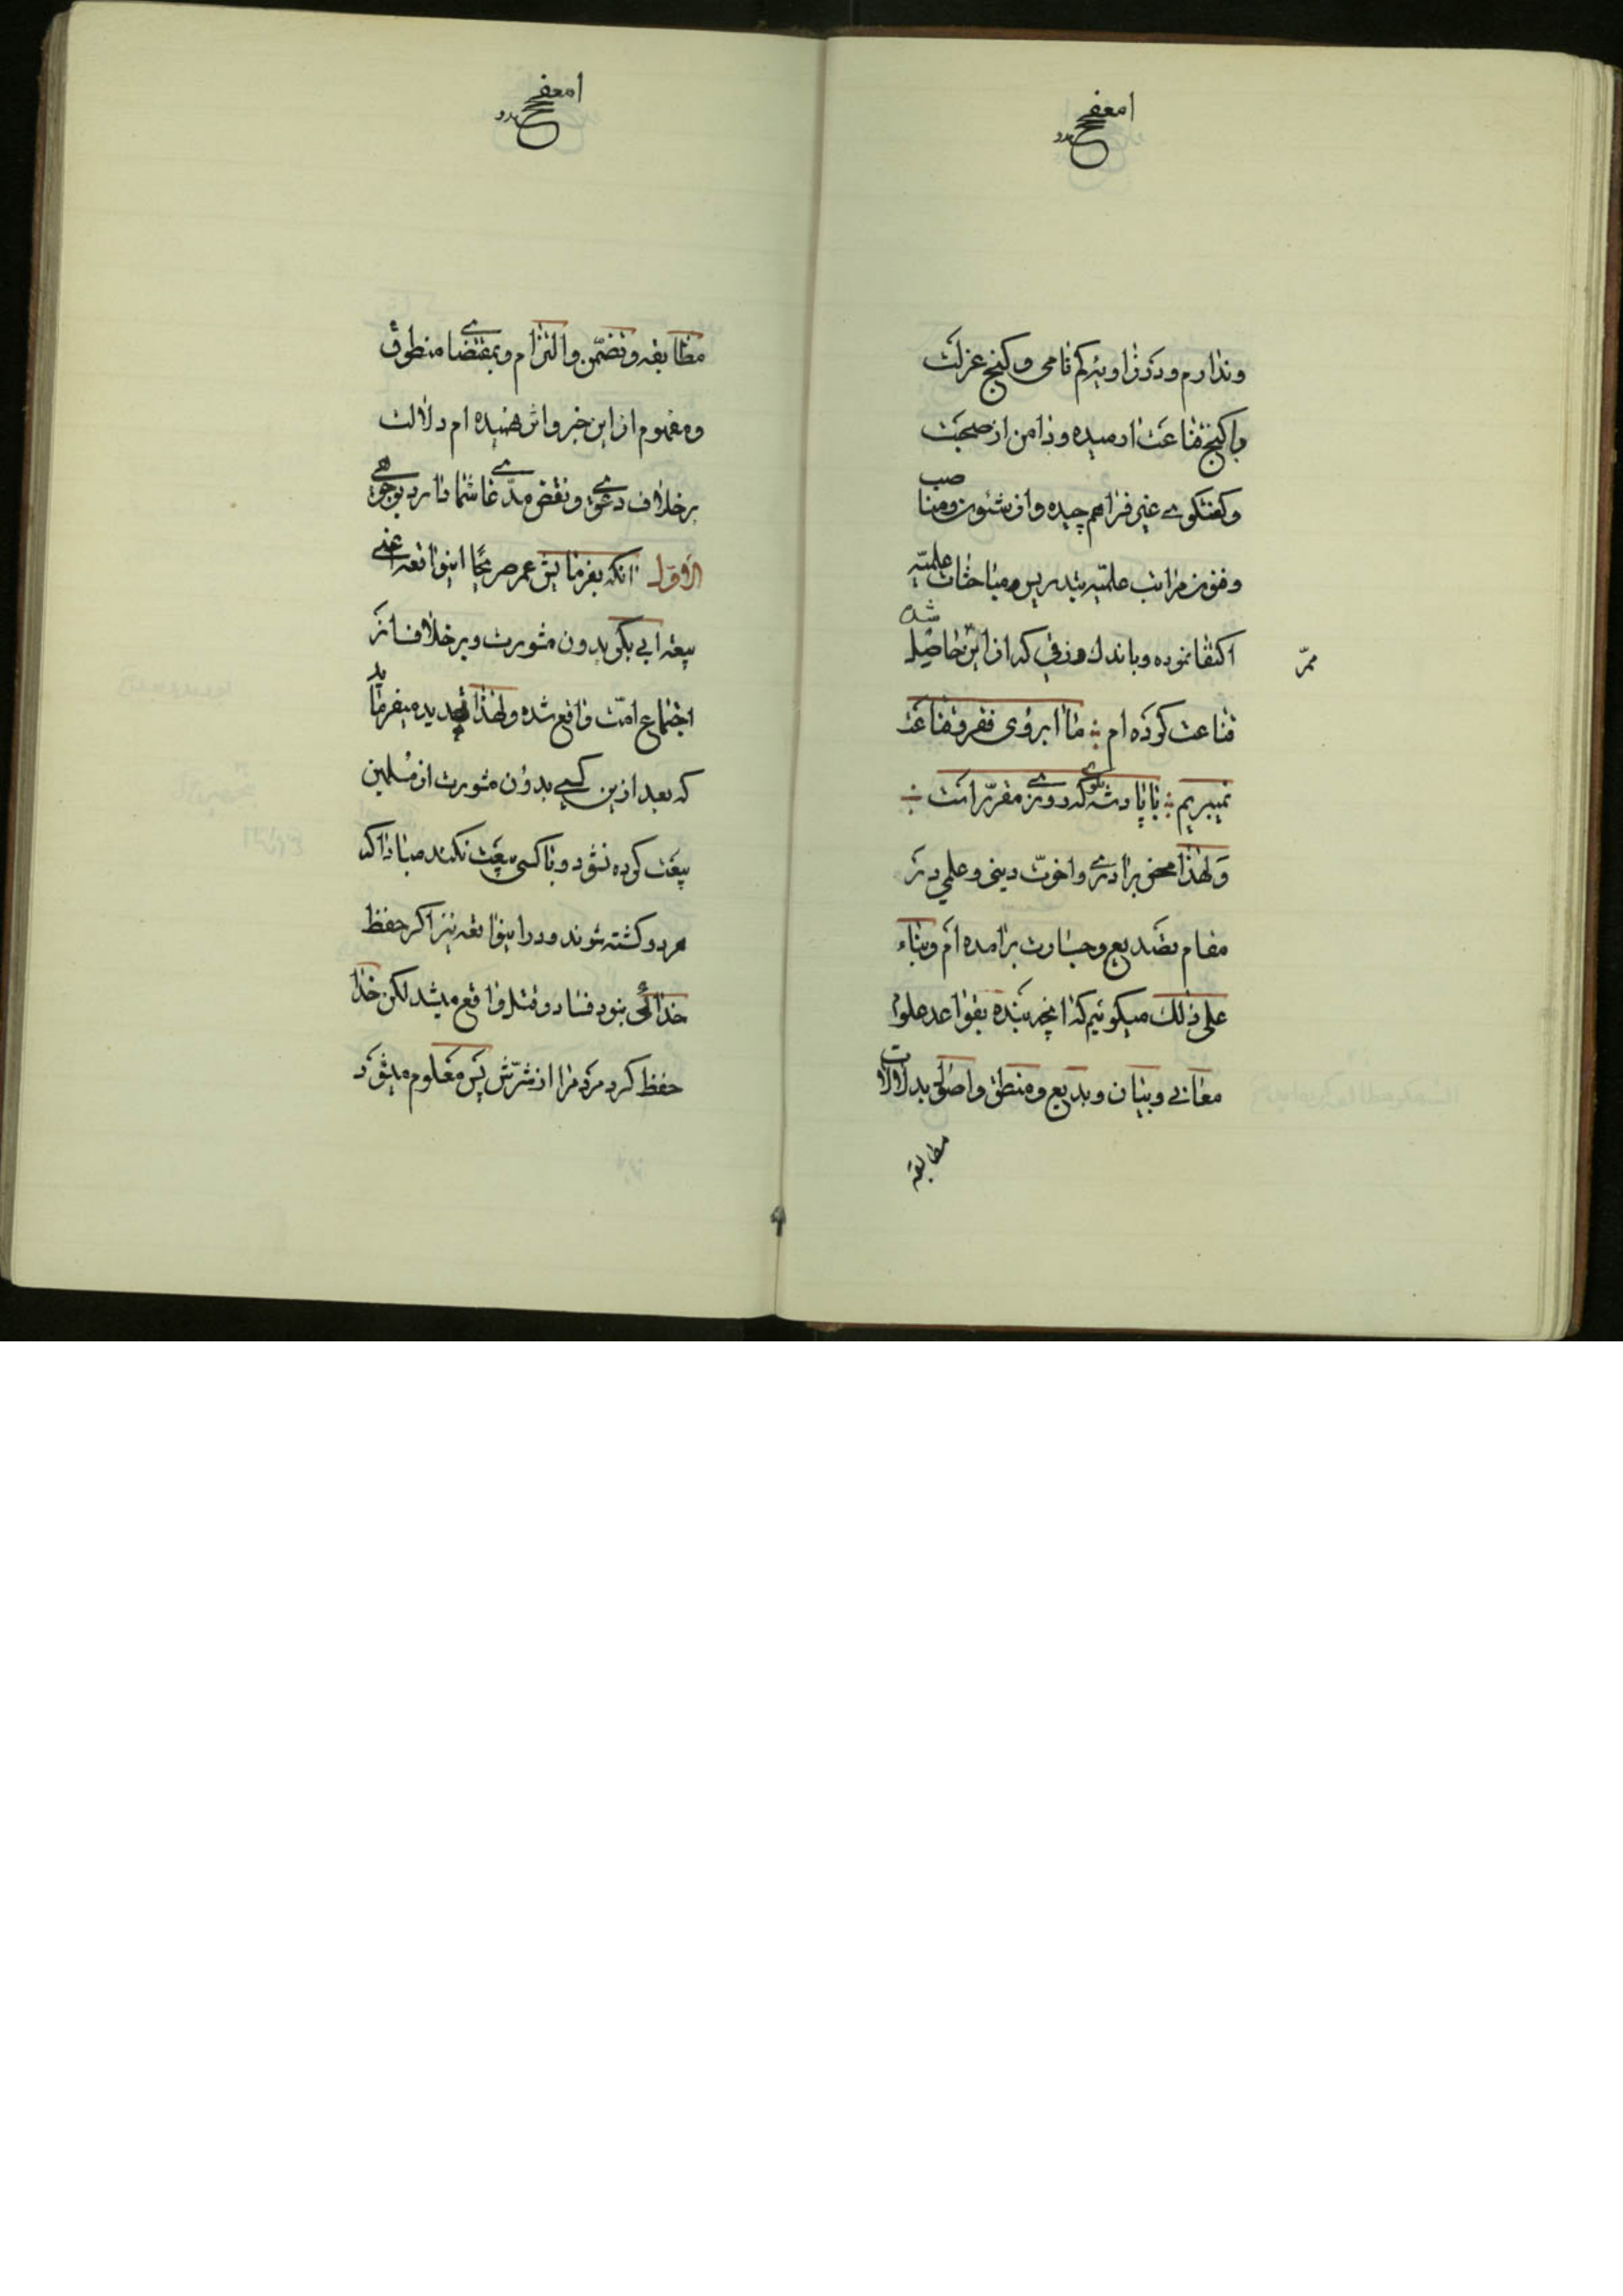 وندارم و در زاویهٔ کم نامی و کنج عزلت
با کنج قناعت ارمیده و دامن از صحبت
و گفتگوی غیر فراهم چیده و از شئون و مناصب
و فنون مراتب علمیّه بتدریس و مباحثات علمیّه
اکتفا نموده و باندک رزقی که از این ممرّ حاصل شده
قناعت کرده ام ؛ ما ابروی فقر و قناعت
نمیبریم ؛ با پادشه بگوی که روزی مقرّر است
و لهذا محض برادری و اخوّت دینی و علمی در
مقام تصدیع و جسارت برامده ام و بناء
علی ذلک میگوئیم که انچه بنده بقواعد علوم
معانی و بیان و بدیع و منطق و اصول بدلالات
مطابقه
مطابقه و تضمّن و التزام و بمقتضای منطوق
و مفهوم از این خبر واثر فهمیده ام دلالت
برخلاف دعوی و نقض مدّعای شما دارد بوجوهی
الاوّل انکه بفرمایش عمر صریحًا اینواقعه یعنی
بیعة ابی بکر بدون مشورت و برخلاف از
اجتماع امّت واقع شده و لهذا تهدید میفرماید
که بعد ازین کسی بدون مشورت از مسلمین
بیعت کرده نشود و با کسی بیعت نکنند مبادا که
هر دو کشته شوند و در اینواقعه نیز اگر حفظ
خدائی نبود فساد و قتل واقع میشد لکن خدا
حفظ کرد مردم را از شرّش پس معلوم میشود